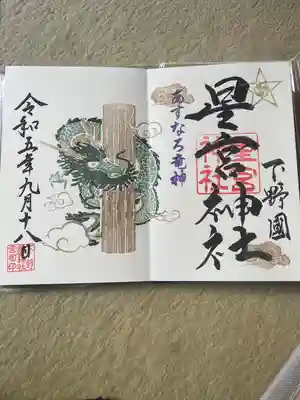 下野國
星宮神社
星宮神社
あすなろ竜神
令和五年九月十八日